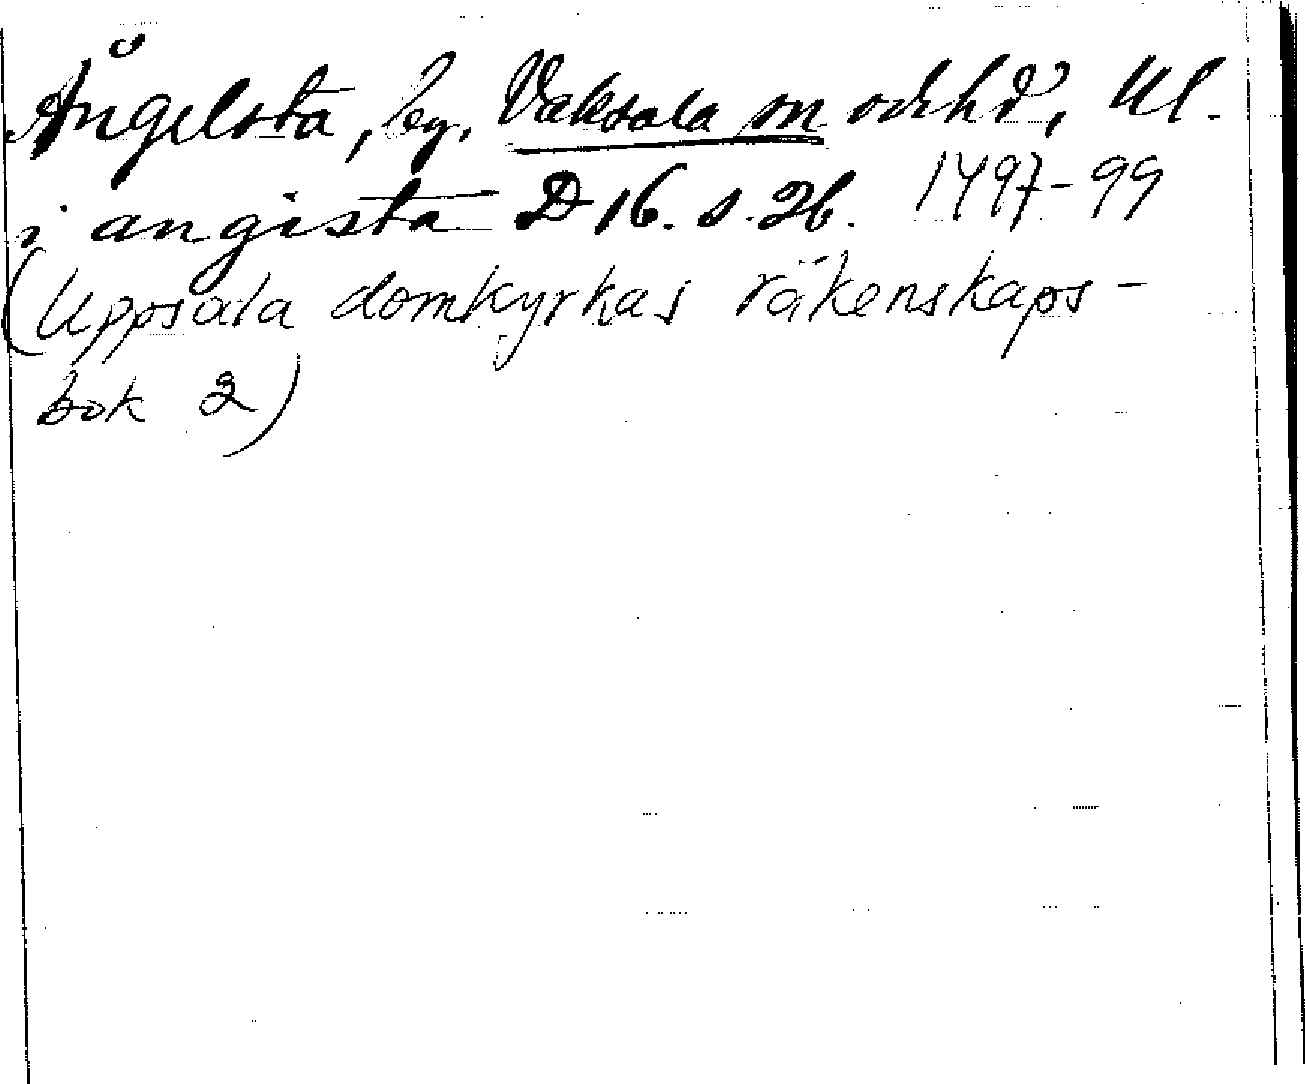 Ångelsta, by, Vaksala sn och hd, Ul.
i angista D 16. s. 26. 1497-99
(Uppsala domkyrkas räkenskaps-
bok 2)